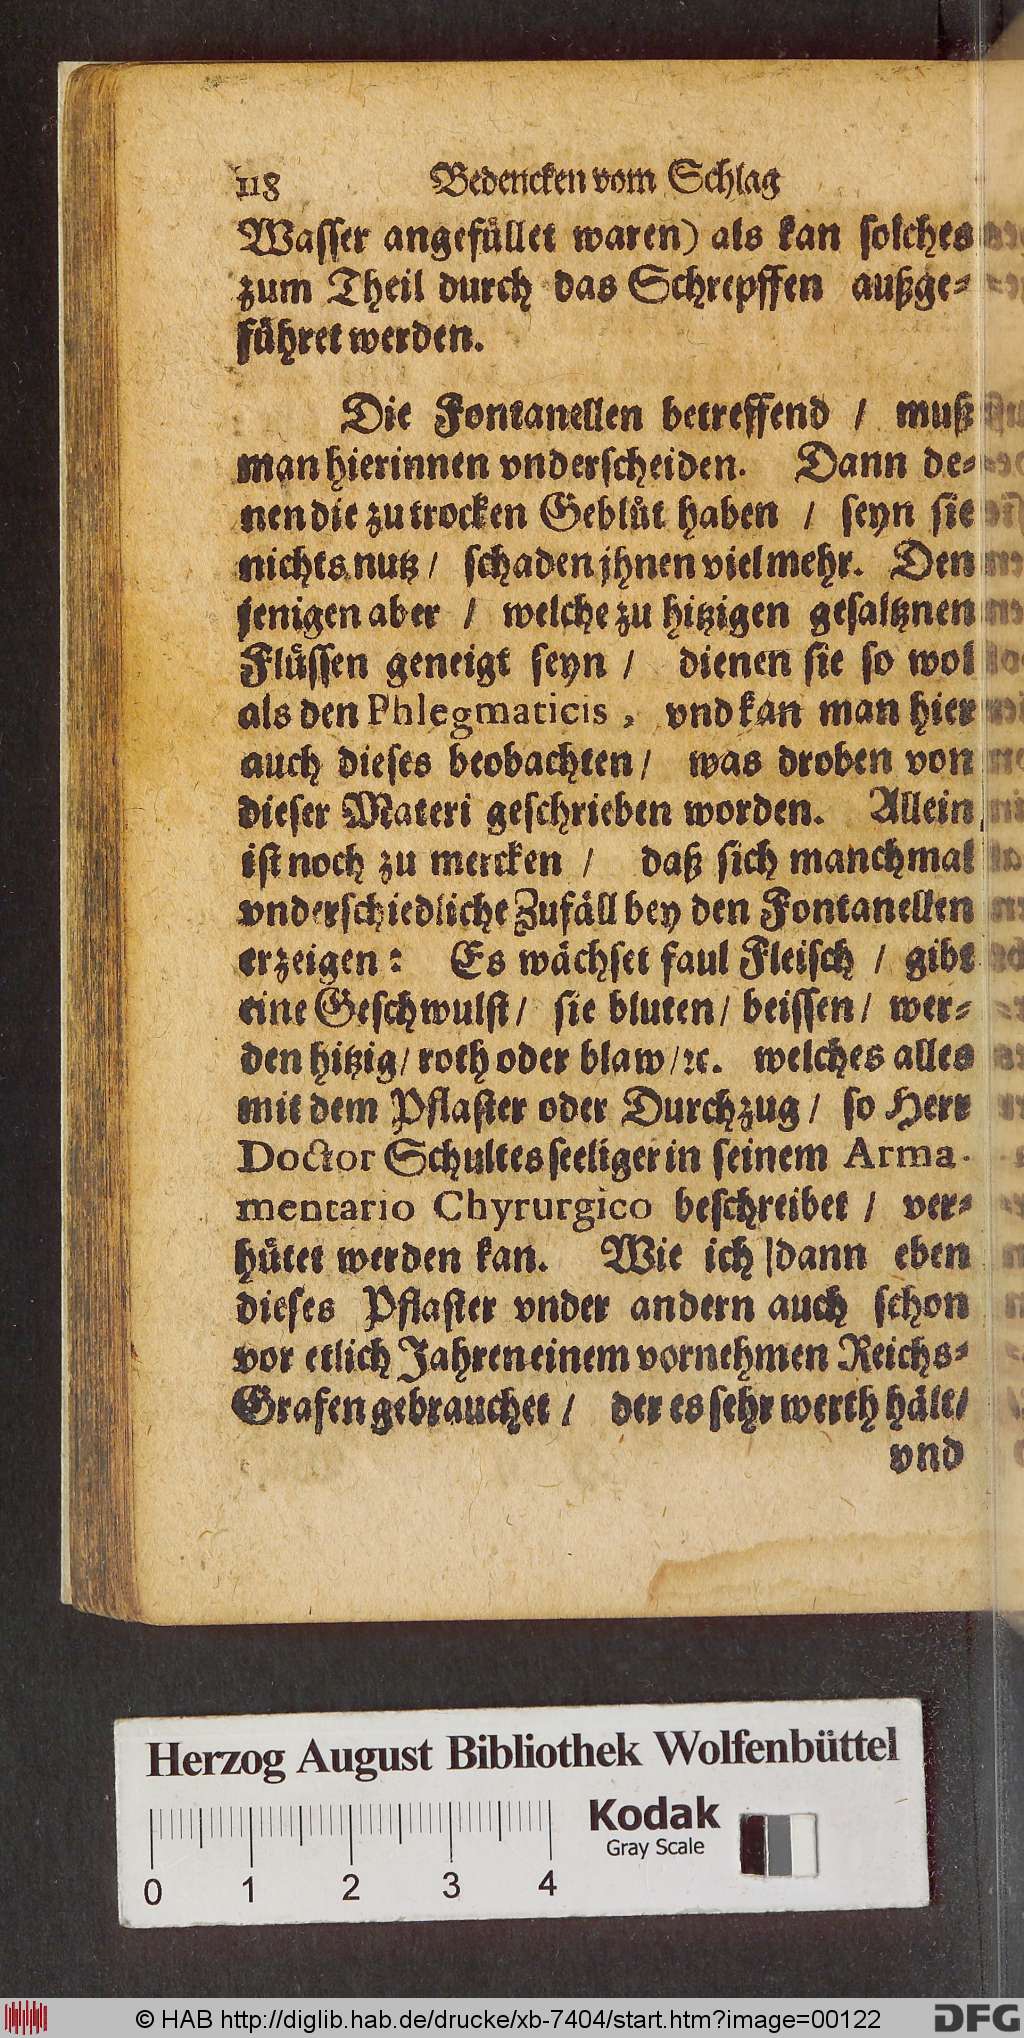 118 Bedencken vom Schlag
Wasser angefüllet waren) als kan solches
zum Theil durch das Schrepffen außge-
führet werden.
Die Fontanellen betreffend / muß
man hierinnen vnderscheiden. Dann de-
nen die zu trocken Geblüt haben / seyn sie
nichts nutz / schaden jhnen viel mehr. Den
jenigen aber / welche zu hitzigen gesaltznen
Flüssen geneigt seyn / dienen sie so wol
als den Phlegmaticis, vnd kan man hier
auch dieses beobachten / was droben von
dieser Materi geschrieben worden. Allein
ist noch zu mercken / daß sich manchmal
vnderschiedliche Zufäll bey den Fontanellen
erzeigen: Es wächset faul Fleisch / gibt
eine Geschwulst / sie bluten / beissen / wer-
den hitzig / roth oder blaw / ꝛc. welches alles
mit dem Pflaster oder Durchzug / so Herr
Doctor Schultes seeliger in seinem Arma-
mentario Chyrurgico beschreibet / ver-
hütet werden kan. Wie ich dann eben
dieses Pflaster vnder andern auch schon
vor etlich Jahren einem vornehmen Reichs-
Grafen gebrauchet / der es sehr werth hält /
vnd
Herzog August Bibliothek Wolfenbüttel
Kodak
Gray Scale
0 1 2 3 4
© HAB http://diglib.hab.de/drucke/xb-7404/start.htm?image=00122
DFG